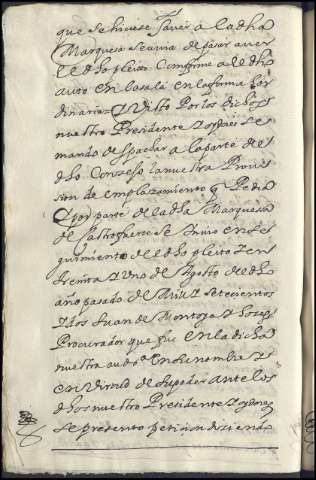 que se hiciese saver a la dha
Marquesa se avia de pasar a ver
el dho pleito Conforme a lo dho
auto en Casa la en la forma hor
dinaria = Y Visto Por los dichos
nuestro Presidente Y oydores se
mando despachar a la parte de el
dho Conzejo la nuestra Provi
sion de emplazamiento q Pedia
Y por parte de la dha Marquesa
de Castrofuerte se Vino en se
guimiento de el dho pleito Y en
treinta Y Uno de Agosto de el dho
año pasado de Mill Y setecientos
Y dos Juan de Montoya Y
Procurador que fue en la dicha
nuestra aud.ª En su nombre Y
en Virtud de su poder ante los
dhos nuestro Presidente Y oydores
se presento peticion diziendo